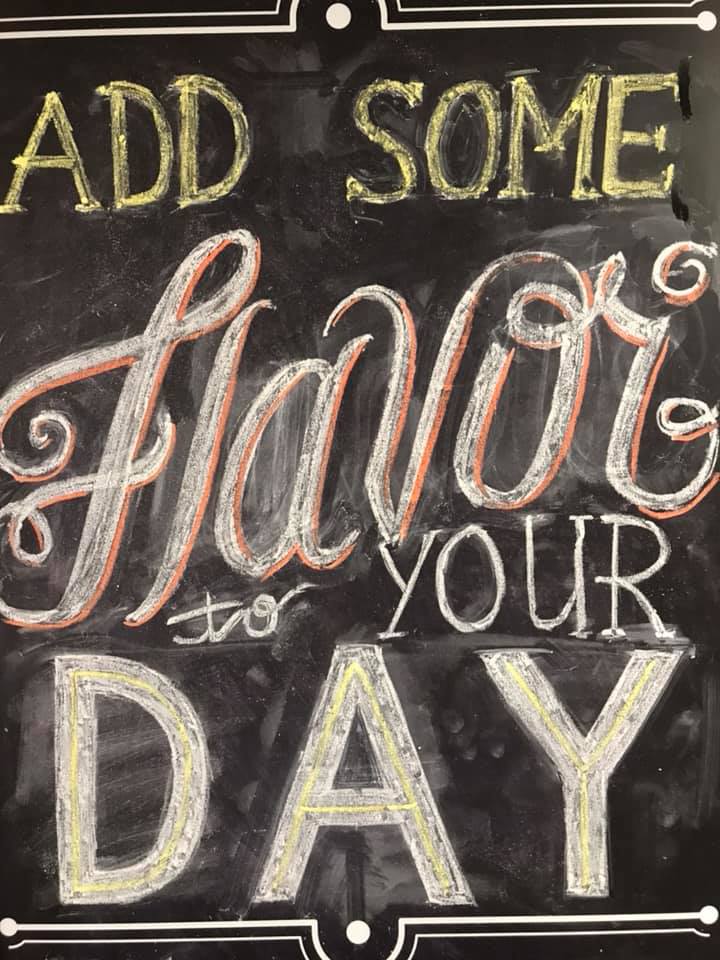 ADD SOME
flavor
to YOUR
DAY